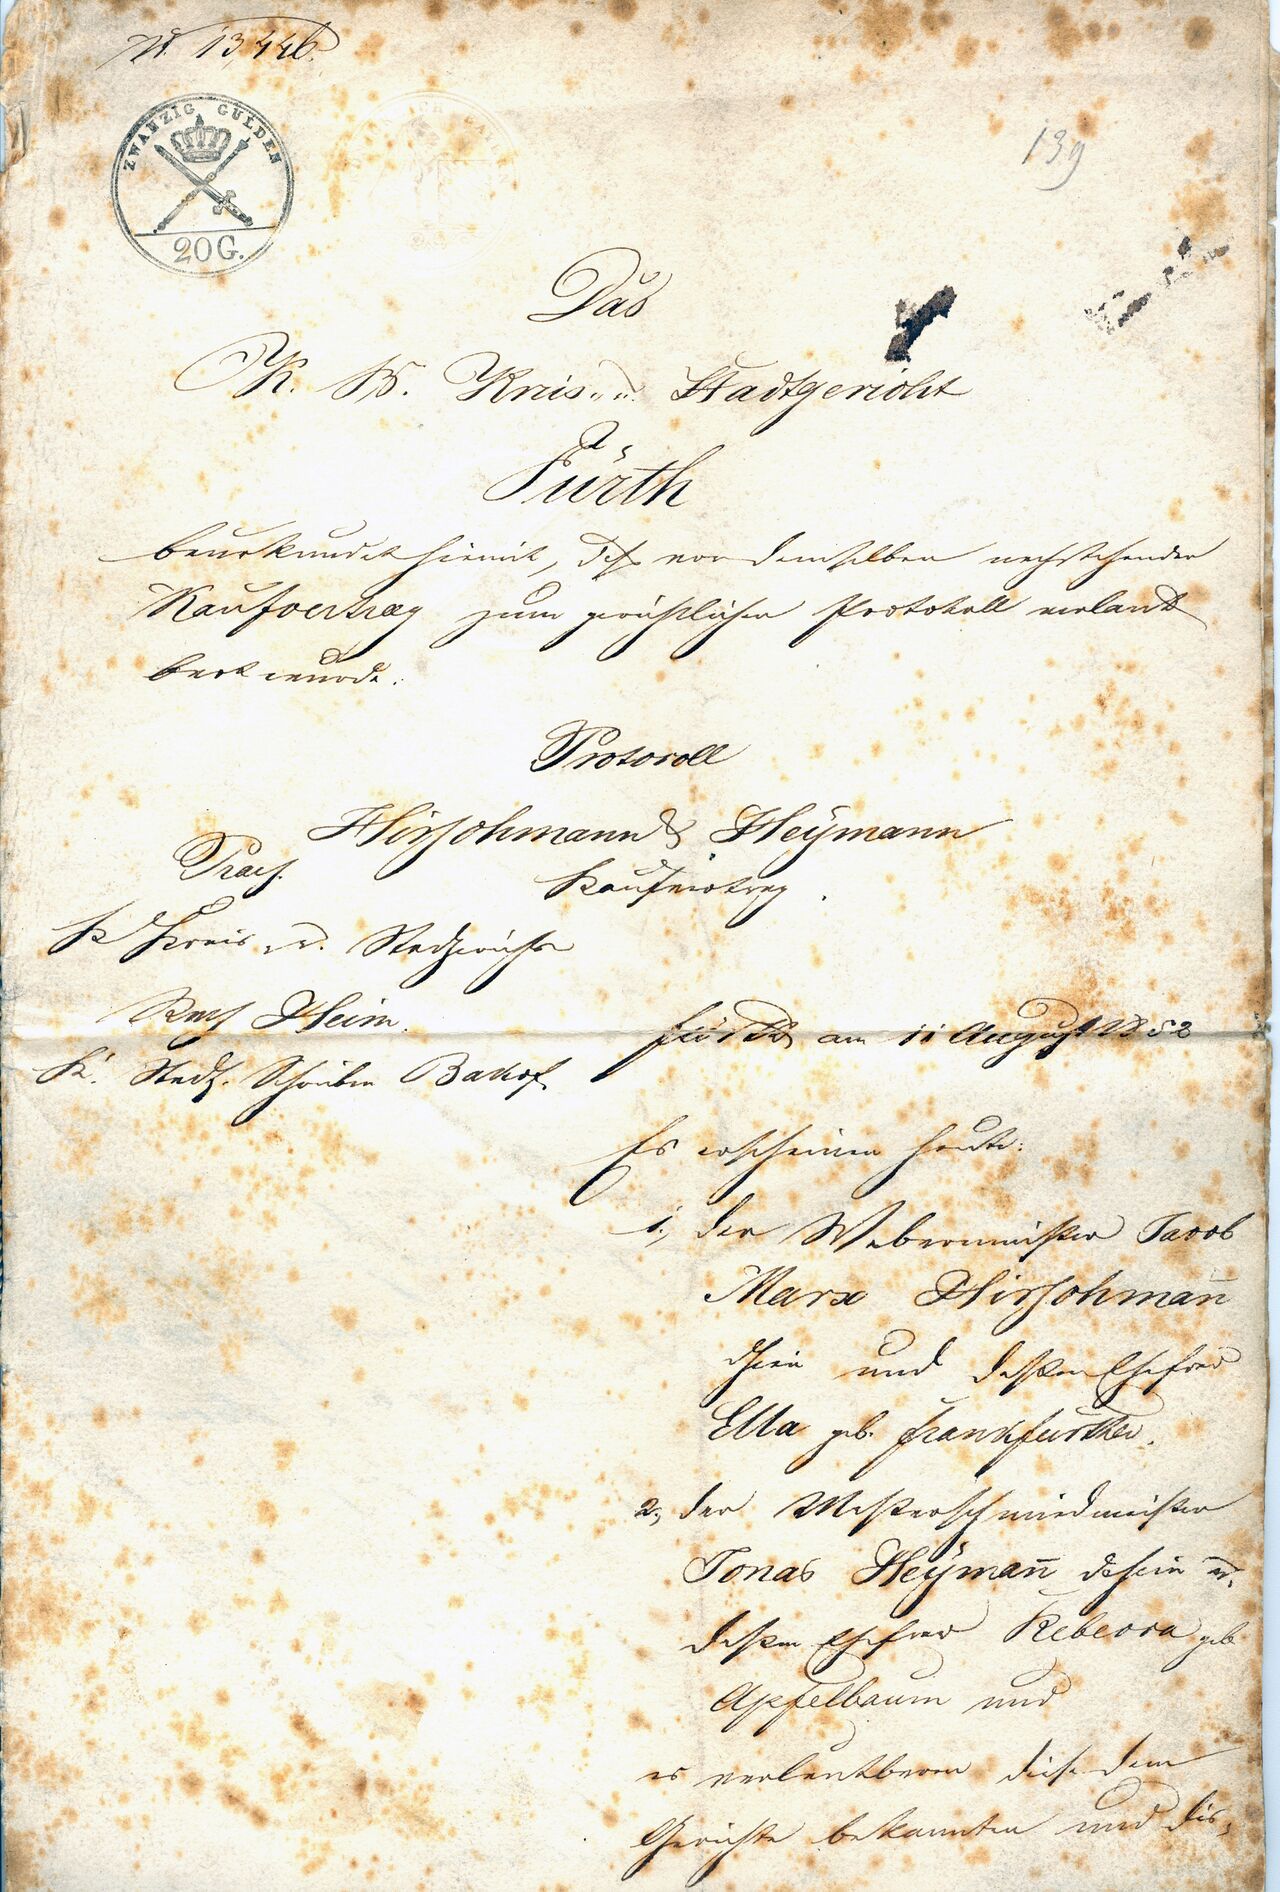 N. 13,446.
ZWANZIG GULDEN
20G.
139
Das
K. B. Kreis- u. Stadtgericht
Fürth
beurkundet hiemit, daß vor demselben nachstehender
Kaufvertrag zum gerichtlichen Protokoll verlaut
bart wurde.
Protocoll
Hirschmann & Heymann
Praes.
Kaufvertrag.
K Kreis u. Stadtgerichts
Rath Heim.
Fürth am 11 August 1852
K. Stadtg. Schreiber
Es erscheinen heute:
1., der Webermeister Jacob
Marx Hirschmann̄
dahier und dessen Ehefrau
Ella geb. Frankfurther.
2., der Messerschmiedmeister
Jonas Heyman̄ dahier u.
dessen Ehefrau Rebecca geb
Apfelbaum und
es verlautbaren diese dem
Gerichte bekannten und dis-